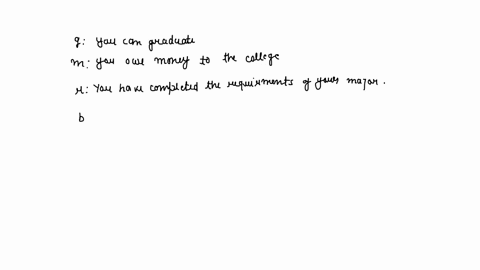 g: you can graduate
m: you owe money to the college
r: You have completed the requirments of your major.
b